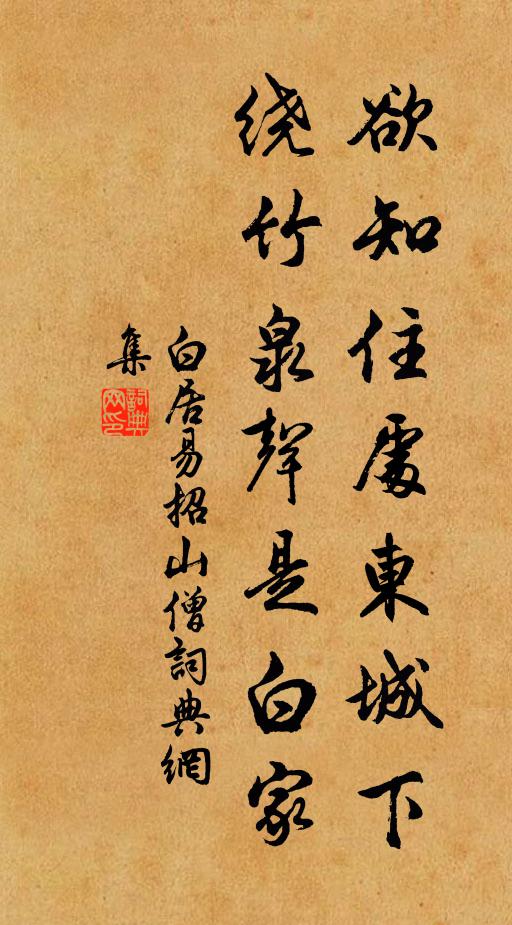 欲知住處東城下
绕竹泉聲是白家
白居易招山僧詞典網
集
詞典网印